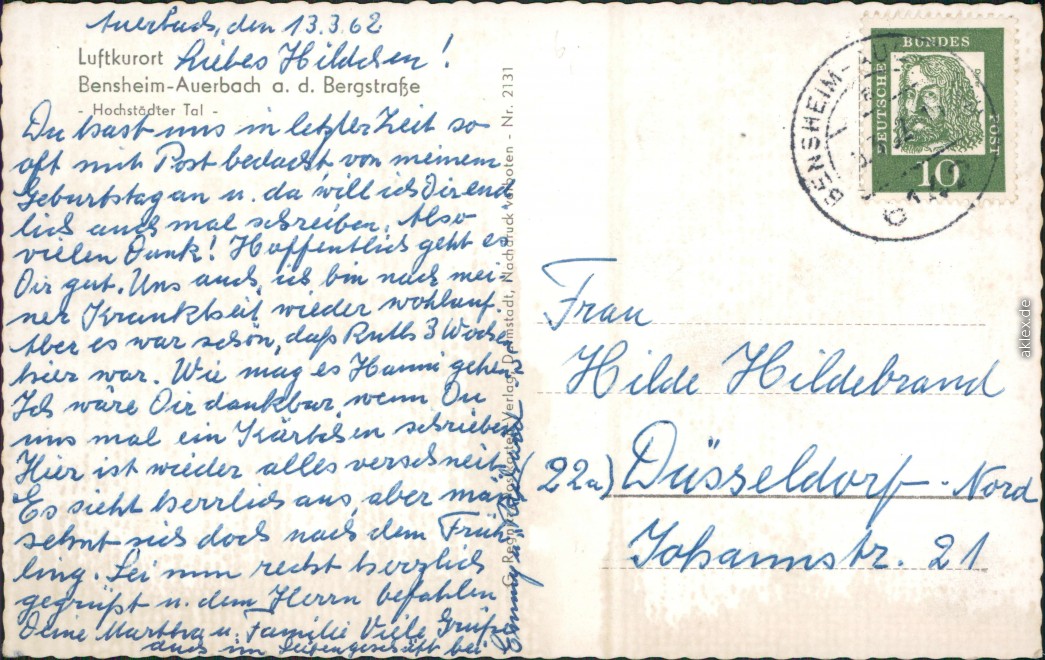 Auerbach, den 13.3.62
Luftkurort
Liebes Hildchen!
Bensheim-Auerbach a. d. Bergstraße
- Hochstädter Tal -
Du hast uns in letzter Zeit so
oft mit Post bedacht von meinem
Geburtstag an u. da will ich Dir end
lich auch mal schreiben. Also
vielen Dank! Hoffentlich geht es
Dir gut. Uns auch, ich bin nach mei-
ner Krankheit wieder wohlauf.
Aber es war schön, daß Ruth 3 Wochen
hier war. Wie mag es Hanni gehen?
Ich wäre Dir dankbar, wenn Du
uns mal ein Kärtchen schrieben
Hier ist wieder alles verschneit
Es sieht herrlich aus, aber man
sehnt sich doch nach dem Früh
ling. Sei nun recht herzlich
gegrüßt u. dem Herrn befohlen
Deine Martha u. Familie Viele Grüße
auch im
bei
Nachdruck verboten - Nr. 2131
BUNDES
DEUTSCHE
POST
10
BENSHEIM-AU
Frau
Hilde Hildebrand
(22a) Düsseldorf-Nord
Johannstr. 21
aklex.de